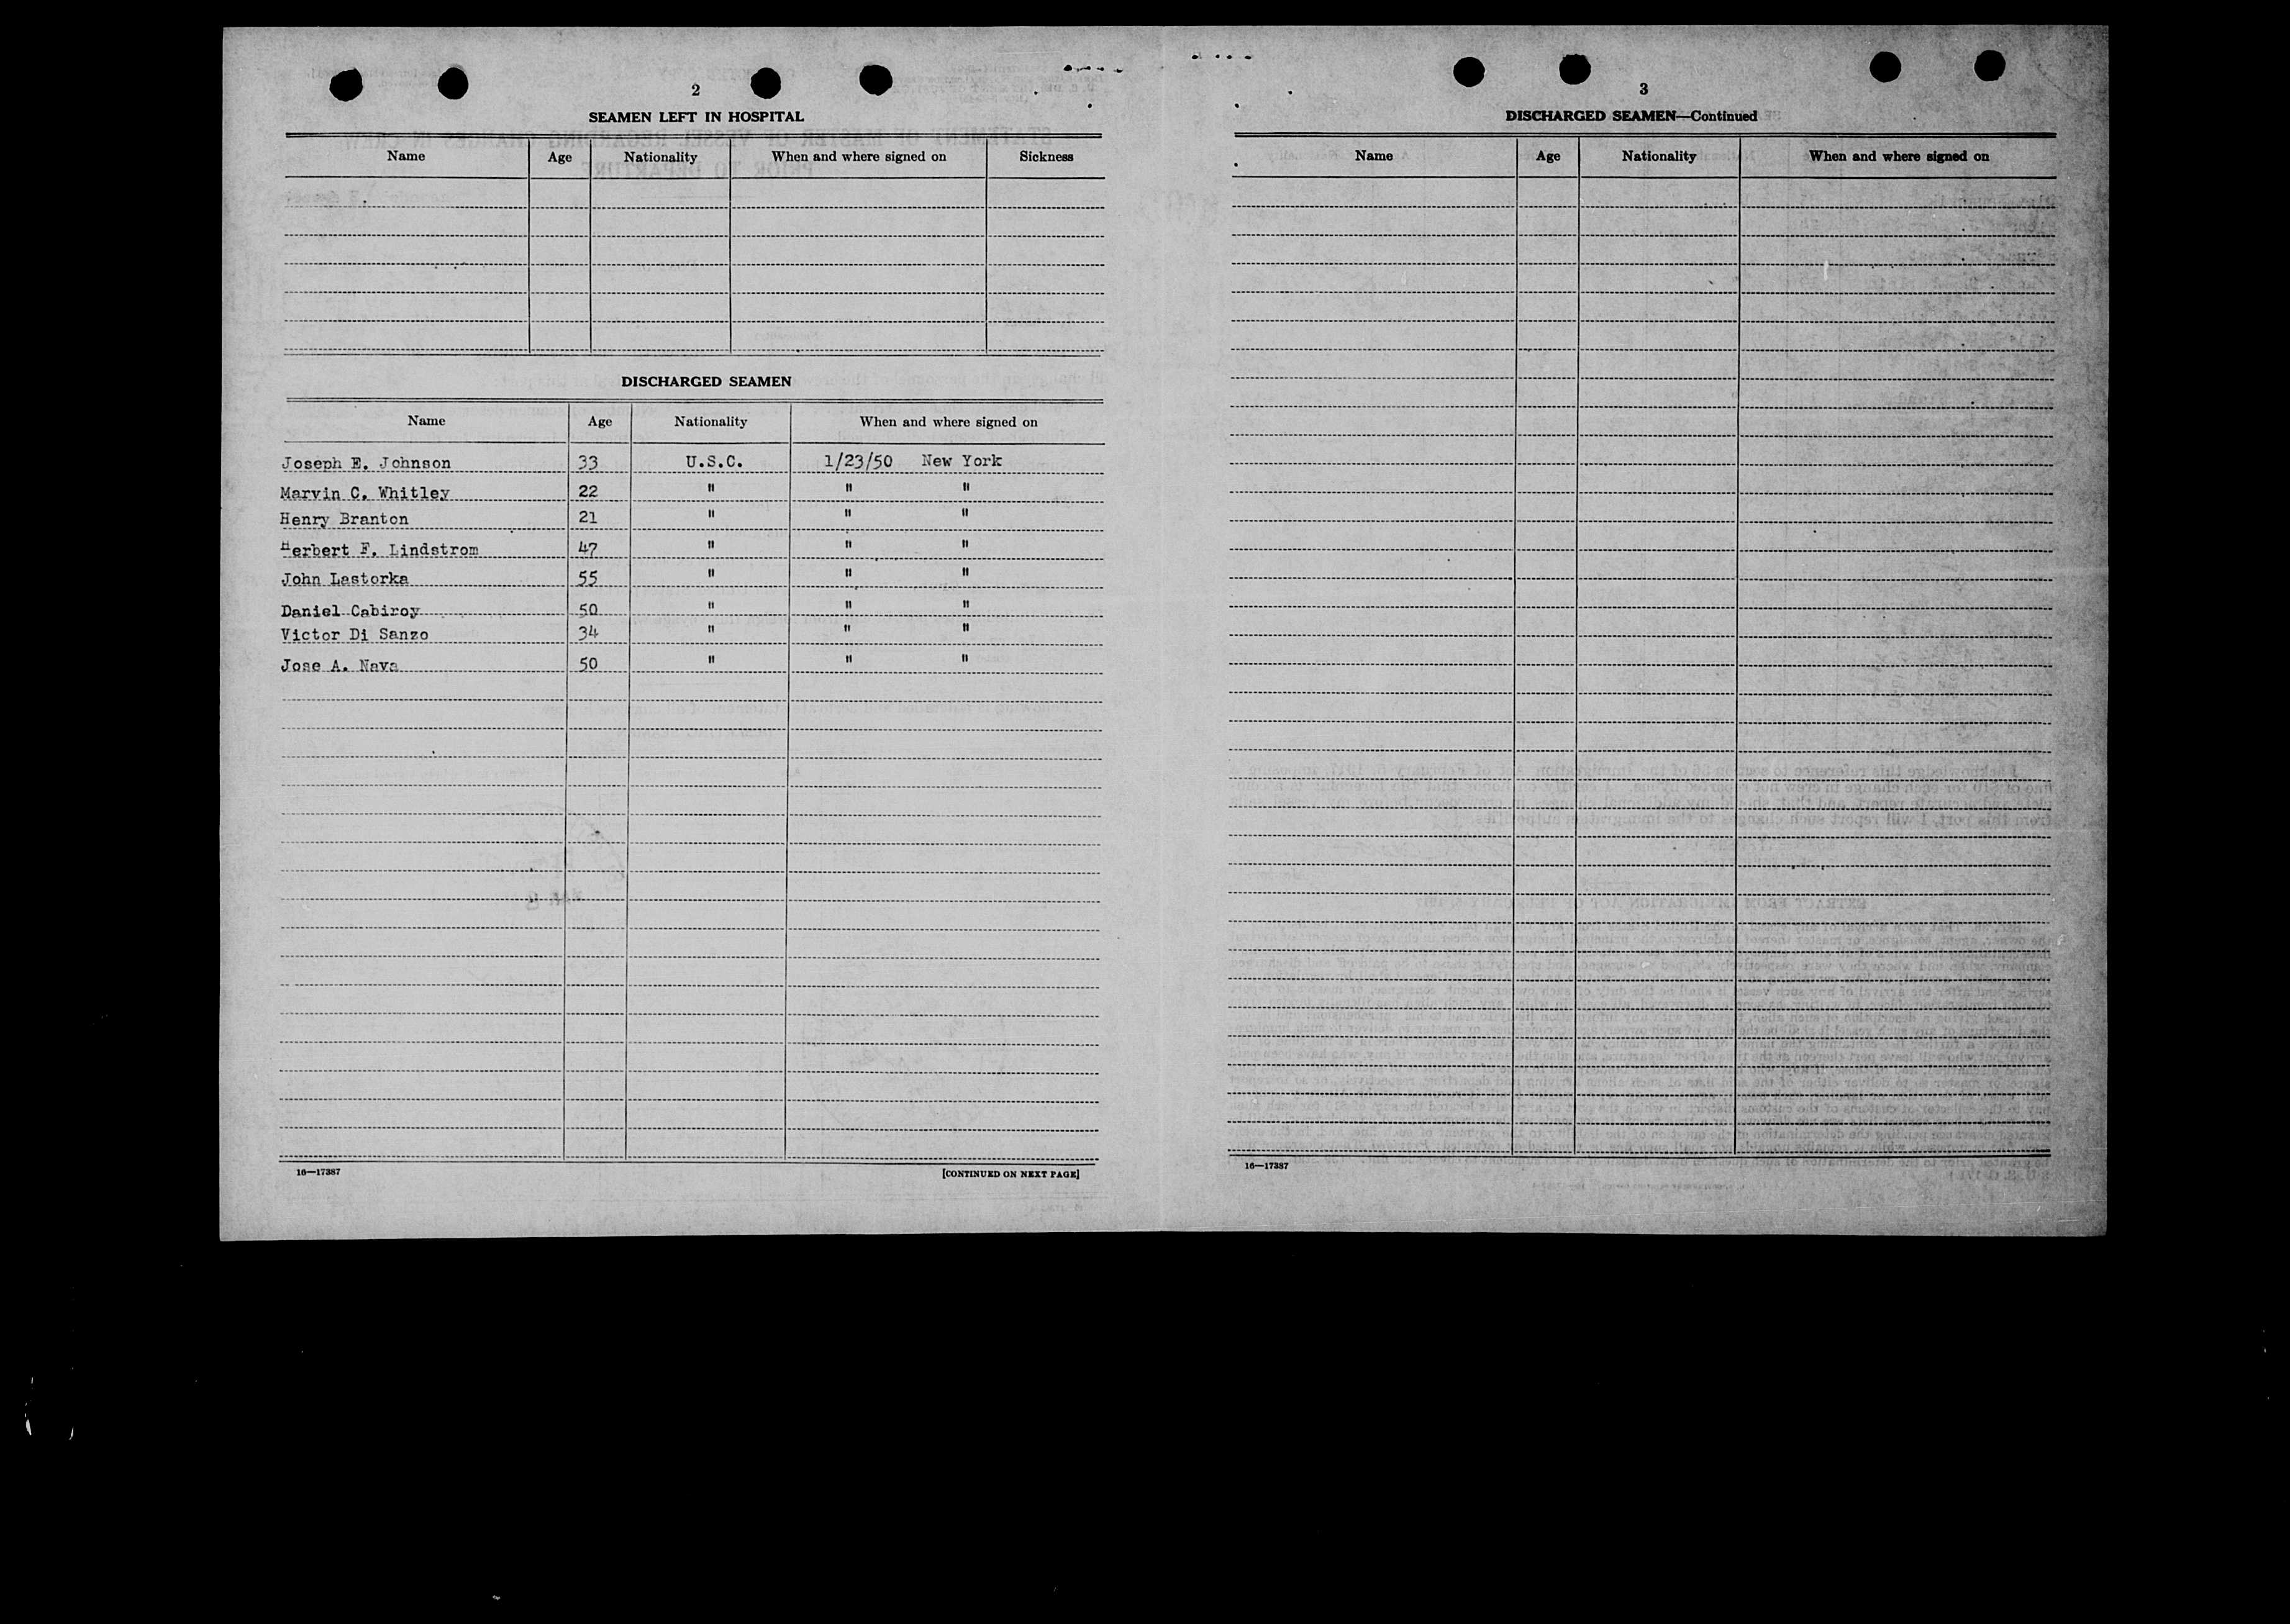 2
SEAMEN LEFT IN HOSPITAL
Name Age Nationality When and where signed on Sickness
DISCHARGED SEAMEN
Name Age Nationality When and where signed on
Joseph E. Johnson 33 U.S.C. 1/23/50 New York
Marvin C. Whitley 22 " " "
Henry Branton 21 " " "
Herbert F. Lindstrom 47 " " "
John Lastorka 55 " " "
Daniel Cabiroy 50 " " "
Victor Di Sanzo 34 " " "
Jose A. Nava 50 " " "
16—17387 [CONTINUED ON NEXT PAGE]
3
DISCHARGED SEAMEN—Continued
Name Age Nationality When and where signed on
16—17387